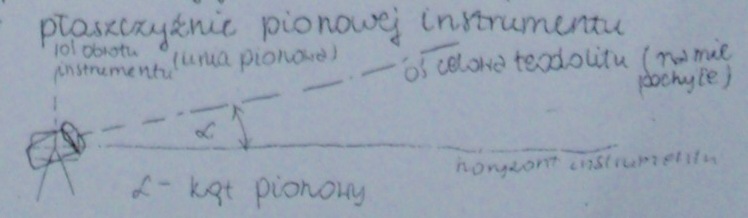 płaszczyźnie pionowej instrumentu
obrotu
instrumentu (linia pionowa)
oś celowa teodolitu (ramię
pochyłe)
α
horyzont instrumentu
α - kąt pionowy